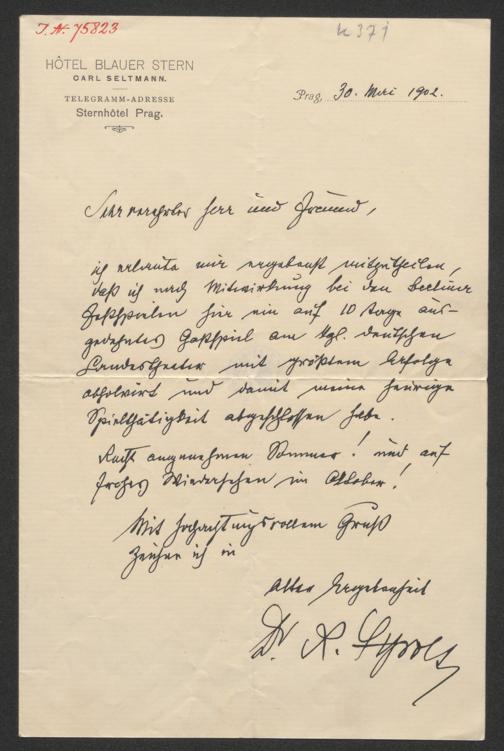 J. N. 75823
HÔTEL BLAUER STERN
CARL SELTMANN.
TELEGRAMM-ADRESSE
Sternhôtel Prag.
Prag, 30. Mai 1902.
Sehr verehrter Herr und Freund,
ich erlaube mir ergebenst mitzutheilen,
daß ich nach Mitwirkung bei den Berliner
Festspielen hier ein auf 10 Tage aus-
gedehntes Gastspiel am kgl. deutschen
Landestheater mit größtem Erfolge
absolvirt und damit meine heurige
Spielthätigkeit abgeschlossen habe.
Recht angenehmen Sommer! und auf
frohes Wiedersehen im Oktober!
Mit hochachtungsvollem Gruß
zeichne ich in
alter Ergebenheit
Dr. R.